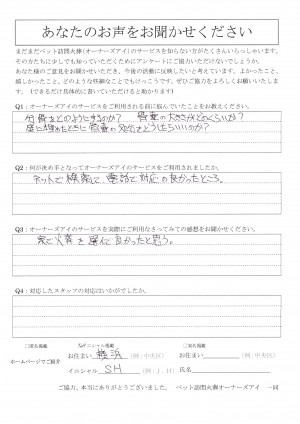 あなたのお声をお聞かせください
まだまだペット訪問火葬(オーナーズアイ)のサービスを知らない方がたくさんいらっしゃいます。
その方たちに少しでも知っていただくためにアンケートにご協力いただけないでしょうか。
あなた様のご意見をお聞かせいただき、今後の活動に反映したいと考えています。よかったこと、
嬉しかったこと、どのような些細なことでもけっこうです。ぜひご協力をよろしくお願いいたします。
(できるだけ具体的に書いていただけると助かります)
Q1：オーナーズアイのサービスをご利用される前に悩んでいたことをお教えください。
分骨をどのようにするのか？ 骨壷の大きさがどれくらいか？
庭に埋めたときに骨壷の処分をどうしたらいいのか？
Q2：何が決め手となってオーナーズアイのサービスをご利用されましたか。
ネットで検索して、電話で対応の良かったところ。
Q3：オーナーズアイのサービスを実際にご利用なさってみての感想をお聞かせください。
家で火葬を選んで良かったと思う。
Q4：対応したスタッフの対応はいかがでしたか。
ホームページでご紹介
□実名掲載
イニシャル掲載
□匿名掲載
お住まい 横浜 (例：中央区)
お住まい (例：中央区)
イニシャル SH (例：J．H)
氏名
ご協力、本当にありがとうございました。 ペット訪問火葬オーナーズアイ 一同